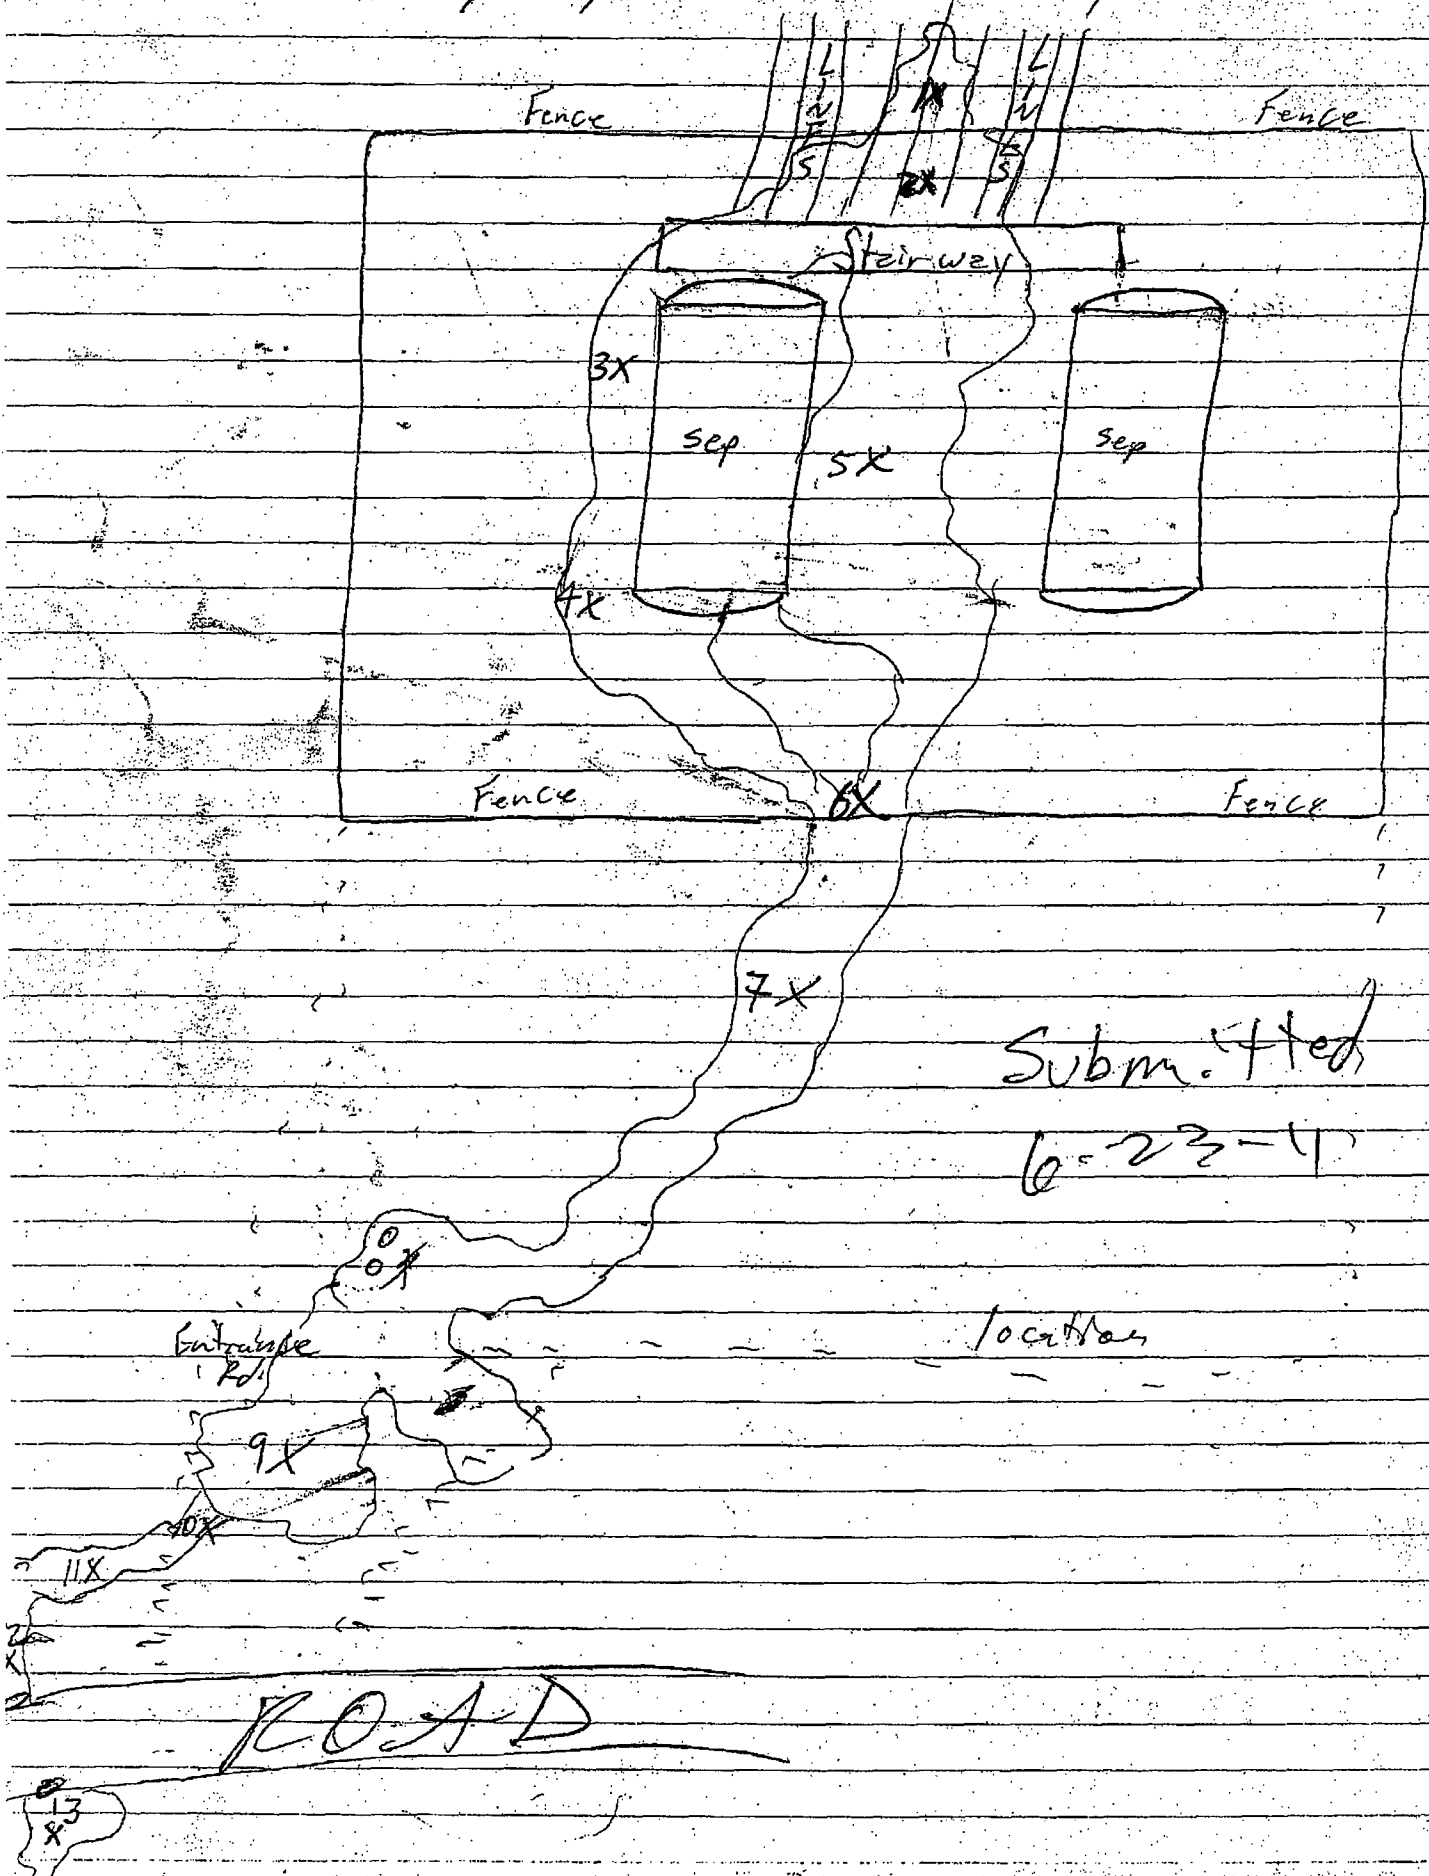 LINES
1X
LINES
Fence
Fence
2X
Stairway
3X
sep
sep
5X
4X
Fence
6X
Fence
7X
Submitted
6-23-4
8X
Entrance
Rd.
location
9X
10X
11X
ROAD
13
X